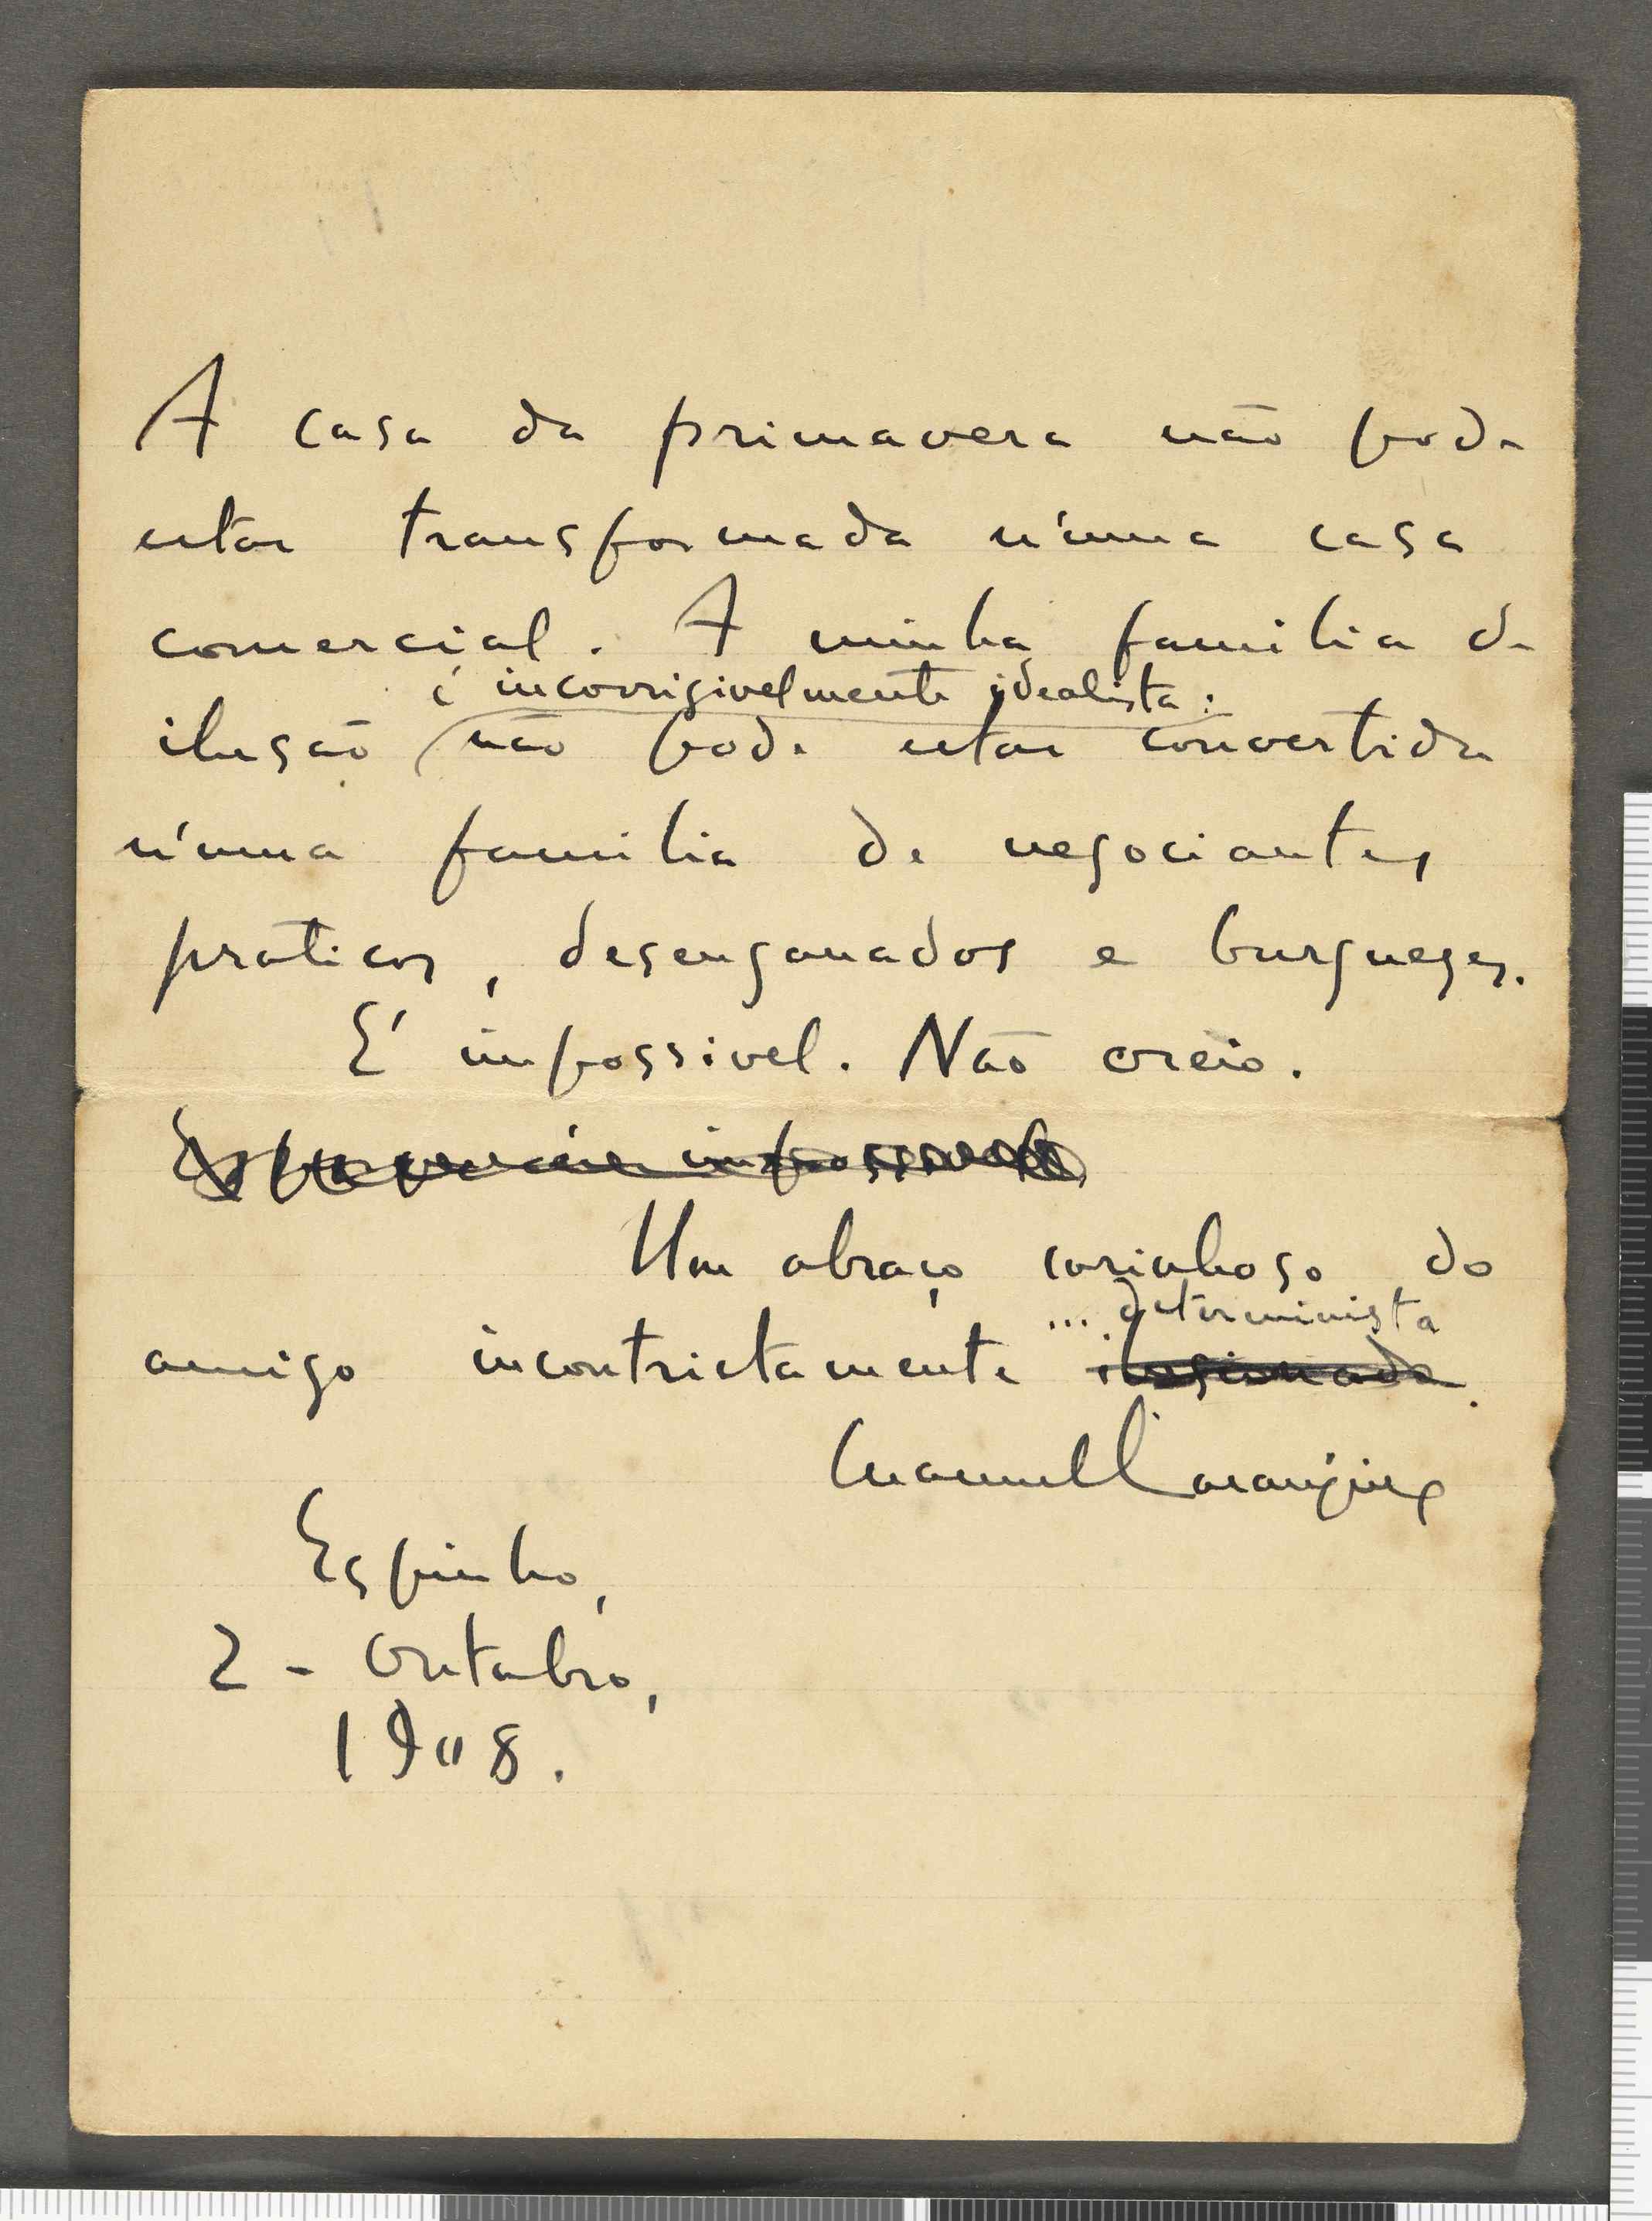 A casa da primavera não pode
estar transformada n'uma casa
comercial. A minha familia de
é incorrigivelmente idealista:
ilusão não pode estar convertida
n'uma familia de negociantes
praticos, desenganados e burgueses.
E' impossivel. Não creio.
impossivel
Um abraço carinhoso do
... determinista
amigo incontrictamente ilusionado.
Manuel Laranjeira
Espinho,
2 - Outubro,
1908.